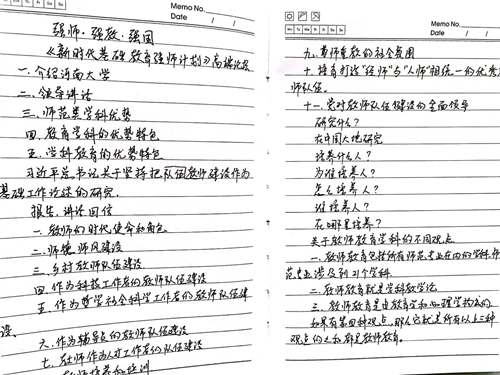 Memo No.
Date / /
强师·强教·强国
《新时代基础教育强师计划》高端论坛
一.介绍河南大学
二.领导讲话
三.师范类学科优势
四.教育学科的优势特色
五.学科教育的优势特色
习近平总书记关于坚持把队伍教师建设作为
基础工作论述的研究.
报告.讲话回信
一.教师的时代使命和角色
二.师德师风建设
三.乡村教师队伍建设
四.作为科技工作者的教师队伍建设
五.作为哲学社会科学工作者的教师队伍建
设.
六.作为辅导员的教师队伍建设
七.教师作为人才工作者的队伍建设
教师培养和培训
Memo No.
Date / /
Mo Tu We Th Fr Sa Su
九.尊师重教的社会氛围
十.培育打造"经师"与"人师"相统一的优秀
师队伍.
十一.党对教师队伍建设的全面领导
研究什么?
在中国大地研究
培养什么人?
为谁培养人?
怎么培养人?
谁培养人?
在哪里培养?
关于教师教育学科的不同观点
一.教师教育包括所有师范专业在内的学科.师
范专业涉及到21个学科.
二.教师教育就是学科教学论
三.教师教育是由教育学和心理学构成的.
如果有第四种观点,那么它就是所有以上三种
观点的之和都是教师教育.